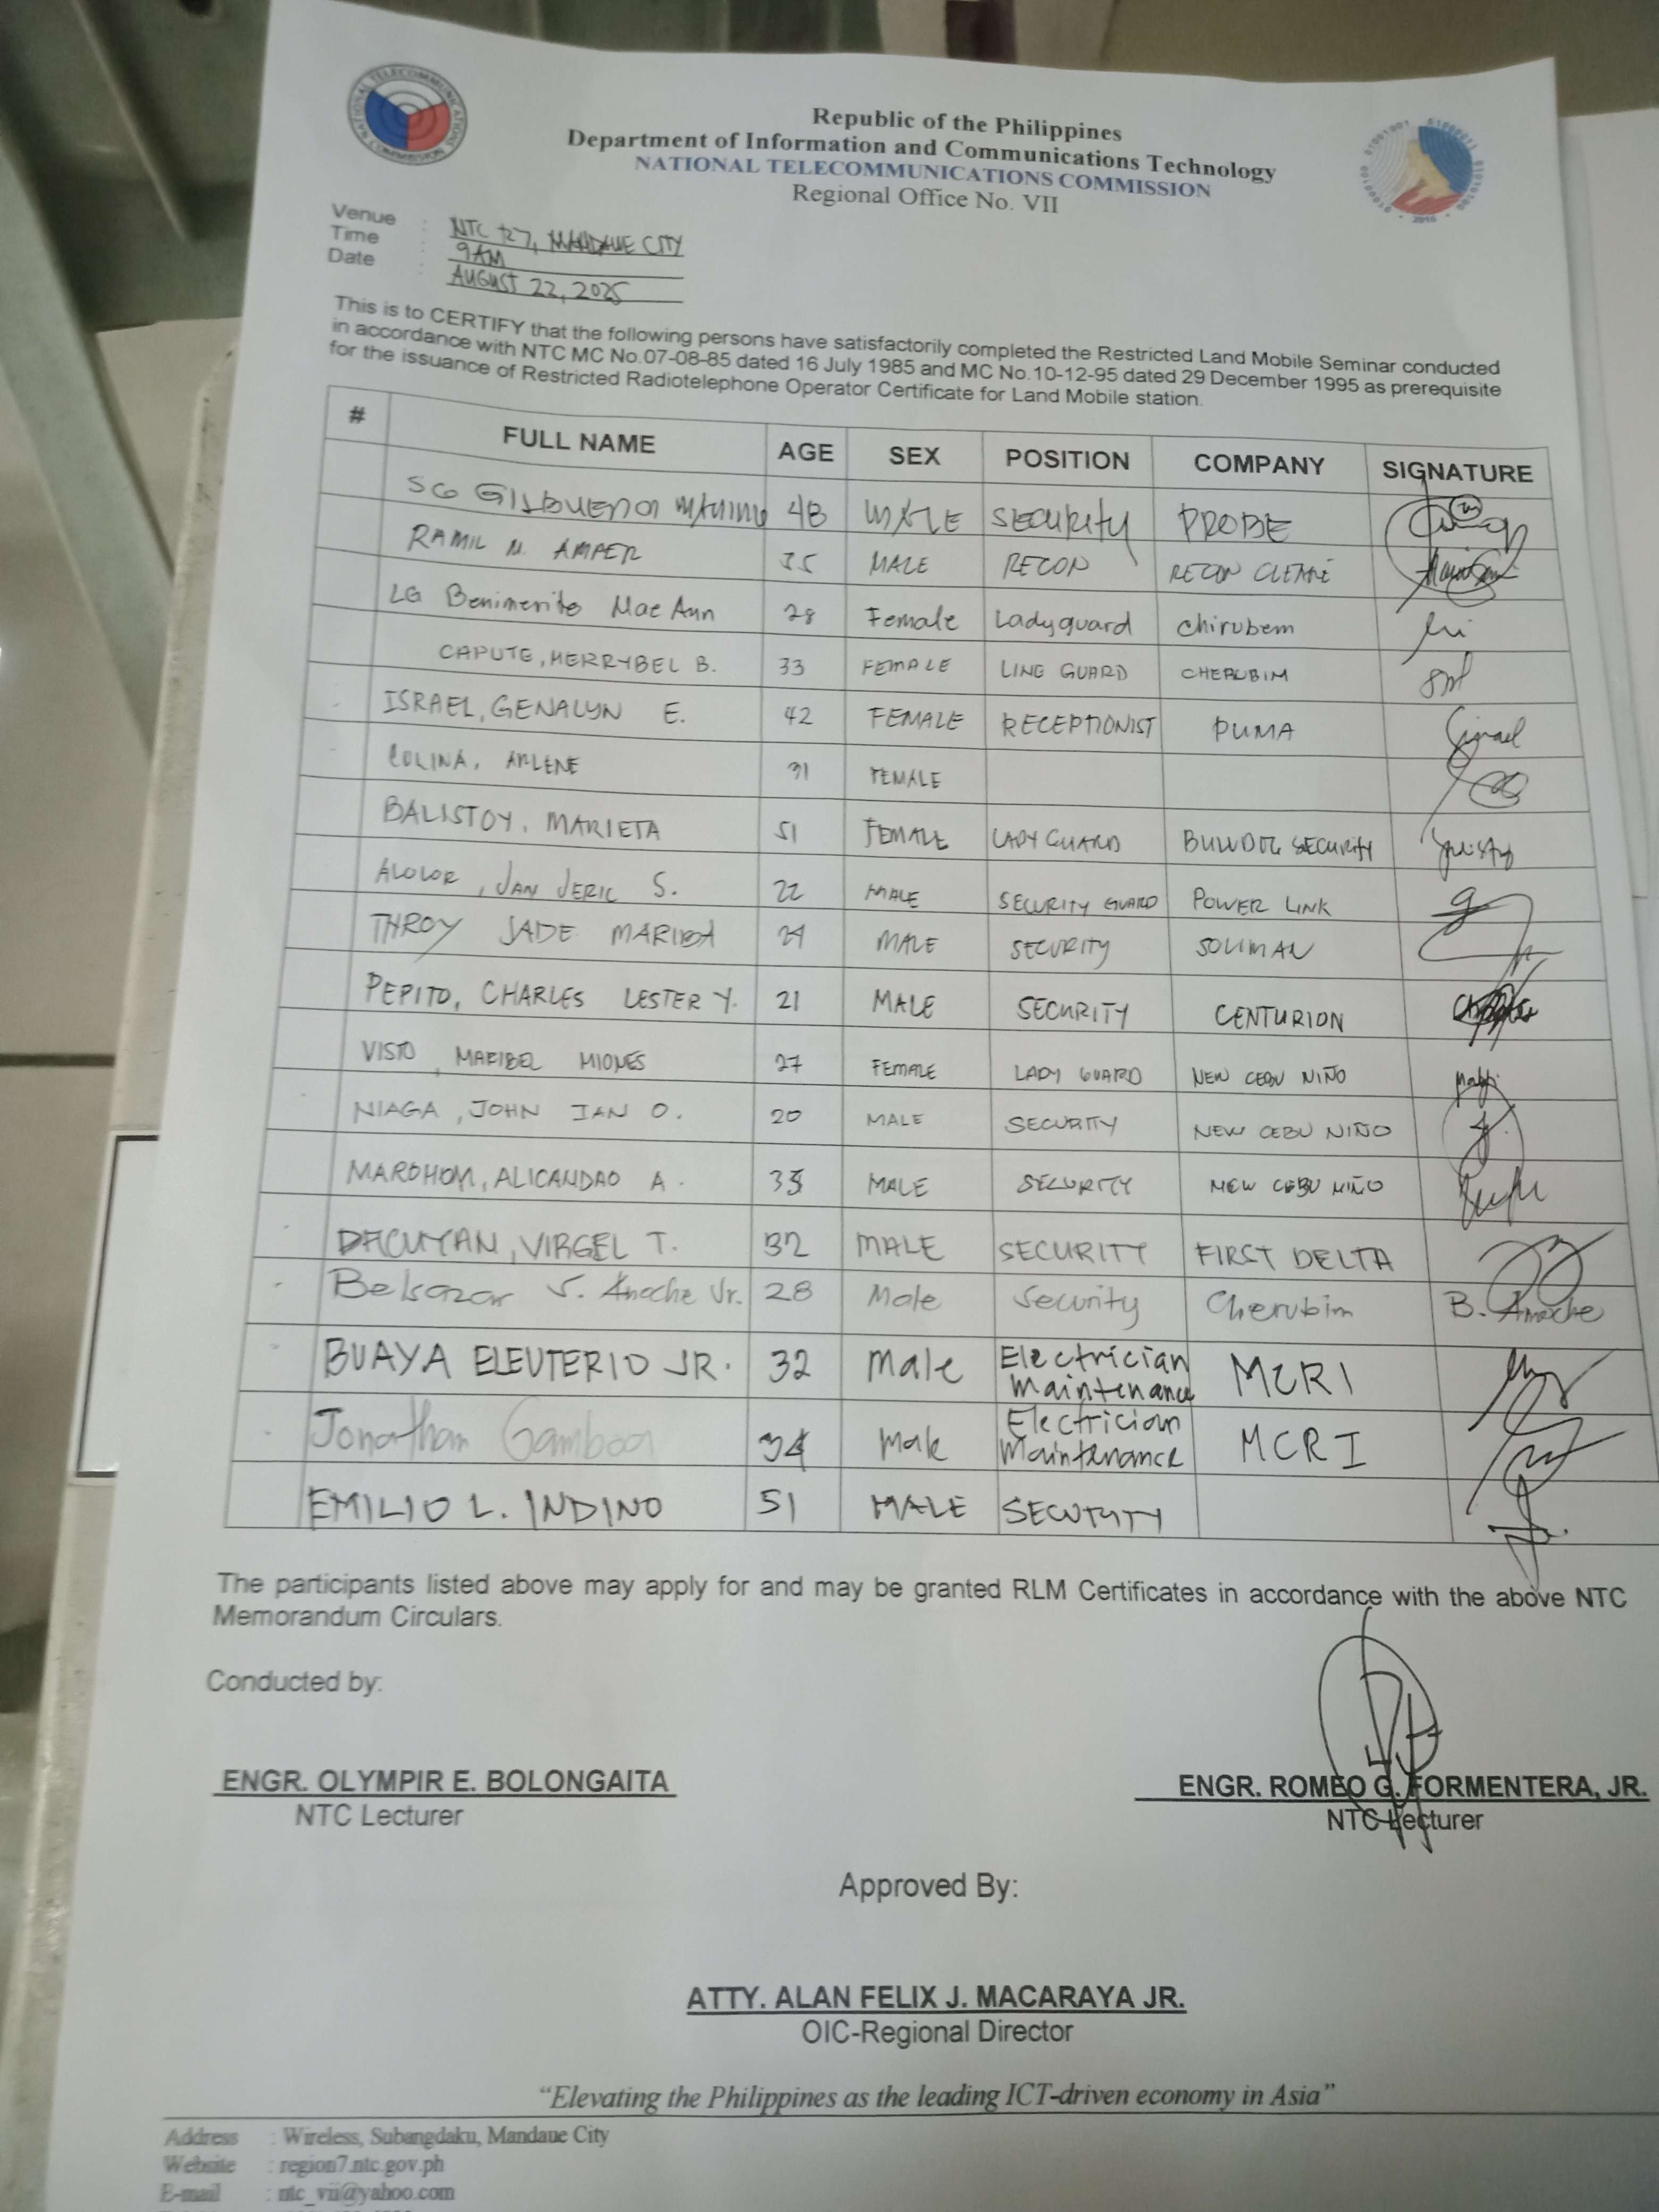 Republic of the Philippines
Department of Information and Communications Technology
NATIONAL TELECOMMUNICATIONS COMMISSION
Regional Office No. VII
Venue : NTC R7, MANDAUE CITY
Time : 9AM
Date : AUGUST 22, 2025
This is to CERTIFY that the following persons have satisfactorily completed the Restricted Land Mobile Seminar conducted
in accordance with NTC MC No.07-08-85 dated 16 July 1985 and MC No.10-12-95 dated 29 December 1995 as prerequisite
for the issuance of Restricted Radiotelephone Operator Certificate for Land Mobile station.
# FULL NAME AGE SEX POSITION COMPANY SIGNATURE
SG 48 MALE SECURITY PROBE
RAMIL N. AMPER 35 MALE RECON RECON
LG Benimerito Mae Ann 28 Female Ladyguard Chirubem
CAPUTE, MERRYBEL B. 33 FEMALE LINE GUARD CHERUBIM
ISRAEL, GENALYN E. 42 FEMALE RECEPTIONIST PUMA
COLINA, ARLENE 31 FEMALE
BALISTOY, MARIETA 51 FEMALE LADY GUARD BULLDOG SECURITY
JAN JERIC S. 22 MALE SECURITY GUARD POWER LINK
THROY JADE 29 MALE SECURITY SOLIMAN
PEPITO, CHARLES LESTER Y. 21 MALE SECURITY CENTURION
VISTO, MARIBEL MIONES 27 FEMALE LADY GUARD NEW CEBU NIÑO
NIAGA, JOHN IAN O. 20 MALE SECURITY NEW CEBU NIÑO
MAROHOM, ALICANDAO A. 35 MALE SECURITY NEW CEBU NIÑO
DACUYAN, VIRGEL T. 32 MALE SECURITY FIRST DELTA
Belsazar S. Anoche Jr. 28 Male Security Cherubim B. Anoche
BUAYA ELEUTERIO JR. 32 Male Electrician Maintenance MCRI
Jonatham Gamboa 34 Male Electrician Maintenance MCRI
EMILIO L. INDINO 51 MALE SECURITY
The participants listed above may apply for and may be granted RLM Certificates in accordance with the above NTC
Memorandum Circulars.
Conducted by:
ENGR. OLYMPIR E. BOLONGAITA
NTC Lecturer
ENGR. ROMEO G. FORMENTERA, JR.
NTC Lecturer
Approved By:
ATTY. ALAN FELIX J. MACARAYA JR.
OIC-Regional Director
“Elevating the Philippines as the leading ICT-driven economy in Asia”
Address : Wireless, Subangdaku, Mandaue City
Website : region7.ntc.gov.ph
E-mail : ntc_vii@yahoo.com